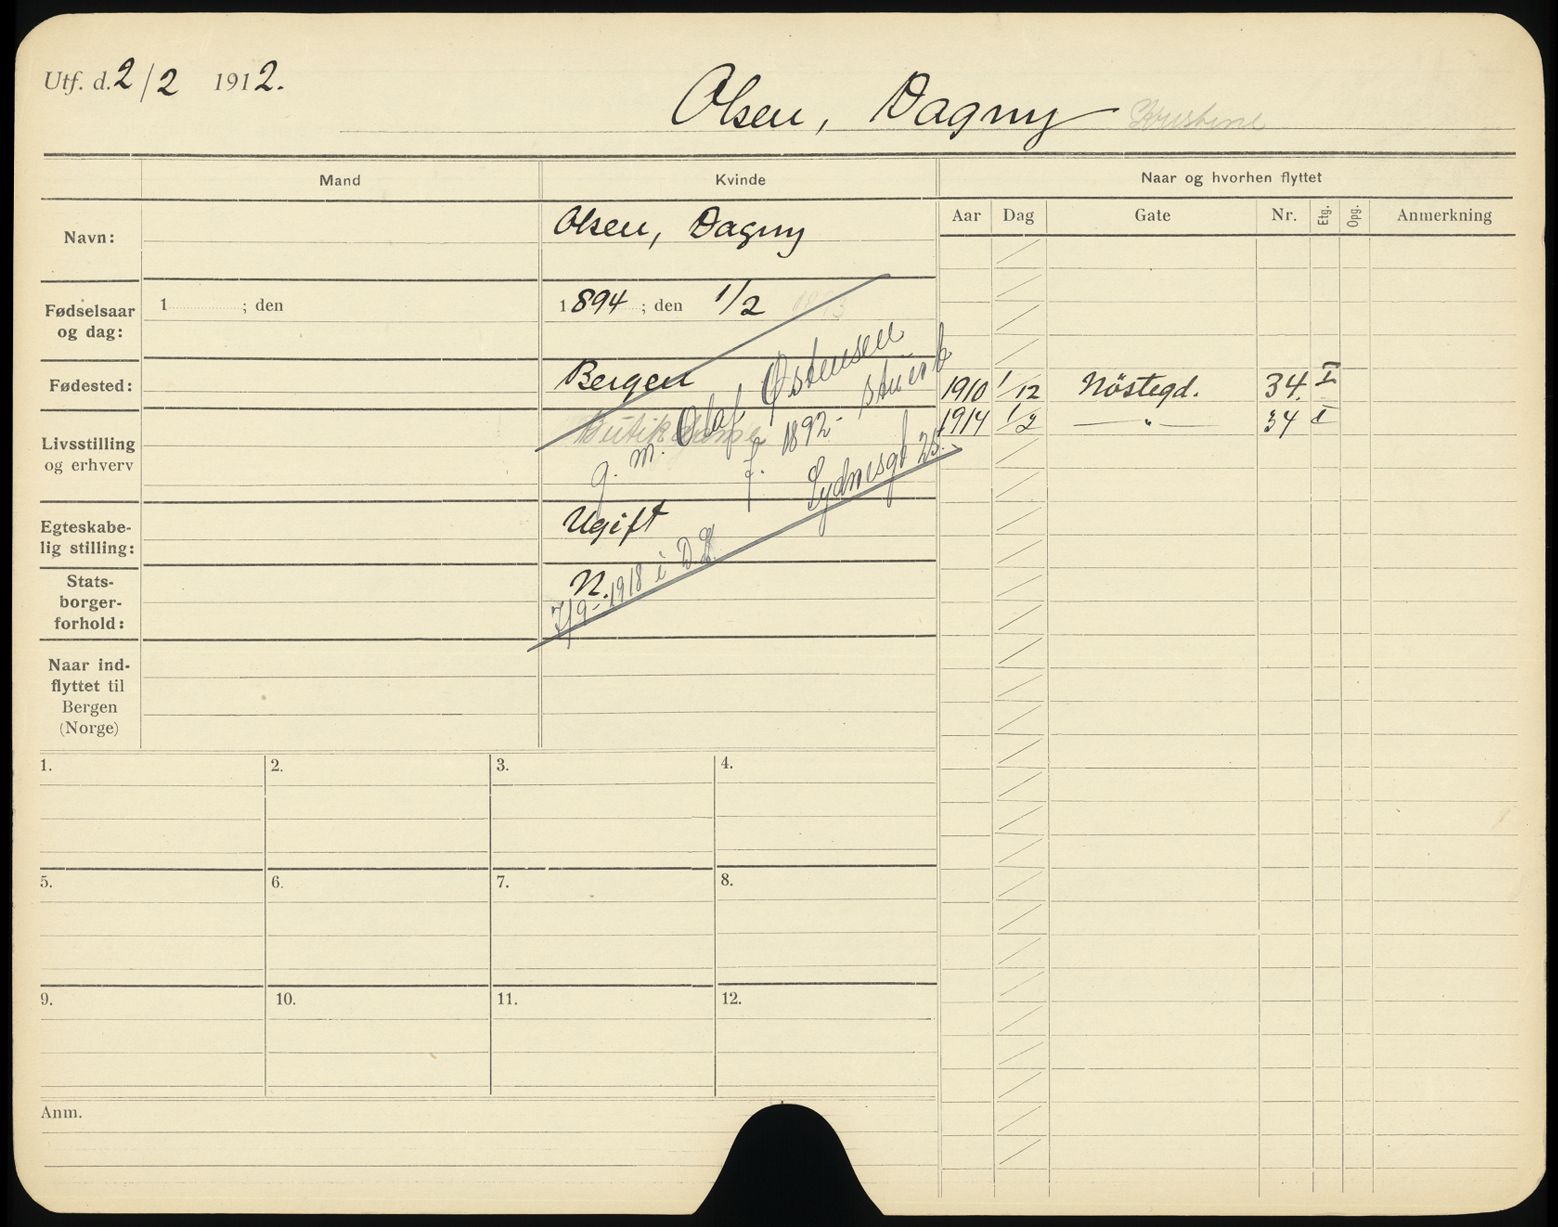 Utf. d. 2/2 1912.
Olsen, Dagny Kristine
Mand
Kvinde
Naar og hvorhen flyttet
Aar Dag Gate Nr. Etg. Opg. Anmerkning
Navn:
Olsen, Dagny
Fødselsaar
og dag:
1 ; den
1894 ; den 1/2 1893
Fødested:
Bergen
1910 1/12 Nöstegd. 34. I
1914 1/2 — " — 34 I
Livsstilling
og erhverv
Butikdame
g. m. Olaf Østensen
f. 1892 - stuerb
Sydnesgt 25.
7/9-1918 i D.K.
Egteskabe-
lig stilling:
Ugift
Stats-
borger-
forhold:
N.
Naar ind-
flyttet til
Bergen
(Norge)
1. 2. 3. 4.
5. 6. 7. 8.
9. 10. 11. 12.
Anm.